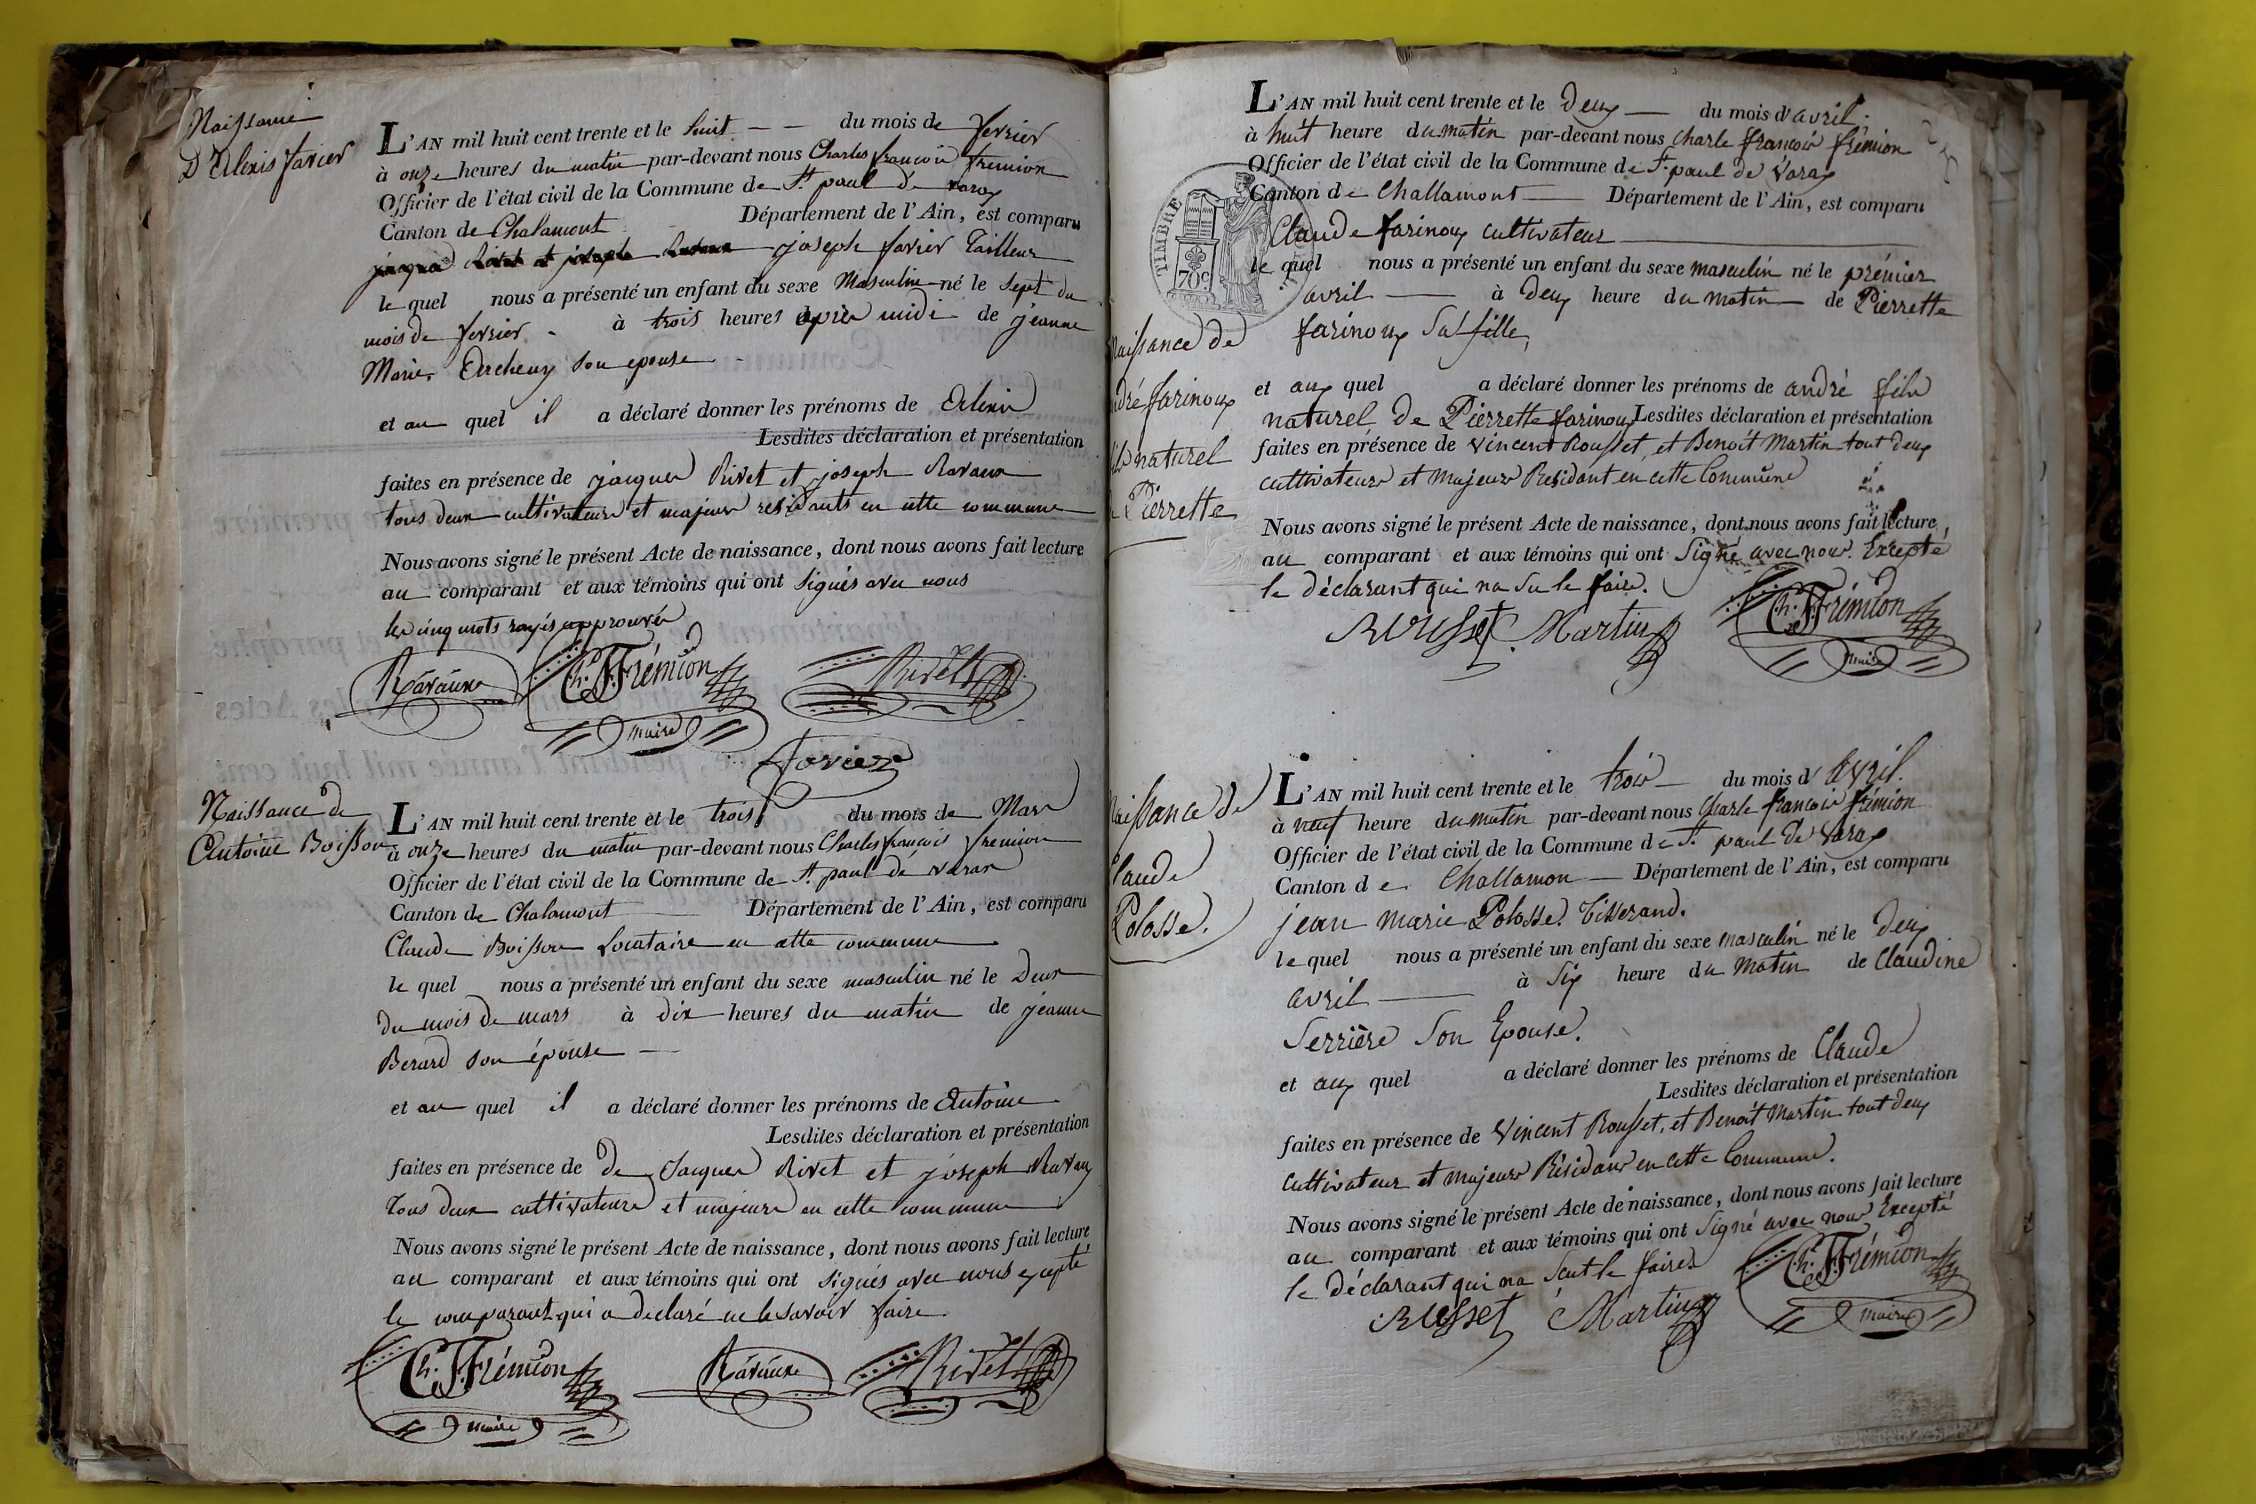 Naissance
D'Alexis Favier
L'AN mil huit cent trente et le huit du mois de fevrier
à onze heures du matin par-devant nous Charles françois fremion
Officier de l'état civil de la Commune de St. paul de varax
Canton de Chalamont Département de l'Ain, est comparu
joseph favier Tailleur
le quel nous a présenté un enfant du sexe Masculin né le sept du
mois de fevrier à trois heures après midi de jeanne
Marie son epouse
et au quel il a déclaré donner les prénoms de Alexis
Lesdites déclaration et présentation
faites en présence de jacques Rivet et joseph Ravaux
tous deux cultivateurs et majeurs residants en cette commune
Nous avons signé le présent Acte de naissance, dont nous avons fait lecture
au comparant et aux témoins qui ont signés avec nous
les cinq mots rayés approuvés
Ravaux Ch. F. Frémion Rivet
maire
Favier
Naissance de
Antoine Boisson
L'AN mil huit cent trente et le trois du mois de Mars
à onze heures du matin par-devant nous Charles françois fremion
Officier de l'état civil de la Commune de St. paul de varax
Canton de Chalamont Département de l'Ain, est comparu
Claude Boisson Locataire en cette commune
le quel nous a présenté un enfant du sexe masculin né le Deux
du mois de mars à dix heures du matin de jeanne
Berard son épouse
et au quel il a déclaré donner les prénoms de Antoine
Lesdites déclaration et présentation
faites en présence de de Jacques Rivet et joseph Ravaux
Tous deux cultivateurs et majeurs en cette commune
Nous avons signé le présent Acte de naissance, dont nous avons fait lecture
au comparant et aux témoins qui ont signés avec nous excepté
le comparant qui a declaré ne le savoir faire
Ch. F. Frémion Ravaux Rivet
maire
L'AN mil huit cent trente et le deux du mois d'avril.
à huit heure du matin par-devant nous Charle françois frémion
Officier de l'état civil de la Commune de St. paul de Varax
Canton de Challamont Département de l'Ain, est comparu
Claude farinoux cultivateur
TIMBRE
70 c.
le quel nous a présenté un enfant du sexe masculin né le prémier
avril à deux heure du matin de Pierrette
farinoux Sa fille,
naissance de
andré farinoux
fils naturel
de Pierrette
et aux quel a déclaré donner les prénoms de andré fils
naturel de Pierrette farinoux Lesdites déclaration et présentation
faites en présence de Vincent Rousset, et Benoit Martin tout deux
cultivateurs et Majeurs Residant en cette Commune
Nous avons signé le présent Acte de naissance, dont nous avons fait lecture
au comparant et aux témoins qui ont Signé avec nous. Excepté
le déclarant qui na su le faire.
Rousset Martin Ch. F. Frémion
maire
Naissance de
Claude
Polosse.
L'AN mil huit cent trente et le trois du mois d'Avril.
à neuf heure du matin par-devant nous Charle françois frémion
Officier de l'état civil de la Commune de St. paul de Varax
Canton de Challamon Département de l'Ain, est comparu
jean marie Polosse. Tisserand.
le quel nous a présenté un enfant du sexe masculin né le deux
avril à Six heure du matin de Claudine
Serrière Son Epouse.
et aux quel a déclaré donner les prénoms de Claude
Lesdites déclaration et présentation
faites en présence de Vincent Rousset, et Benoit Martin tout deux
cultivateur et Majeurs Résidans en cette Commune.
Nous avons signé le présent Acte de naissance, dont nous avons fait lecture
au comparant et aux témoins qui ont Signé avec nous Excepté
le déclarant qui na Scut le faire
Rousset Martin Ch. F. Frémion
maire